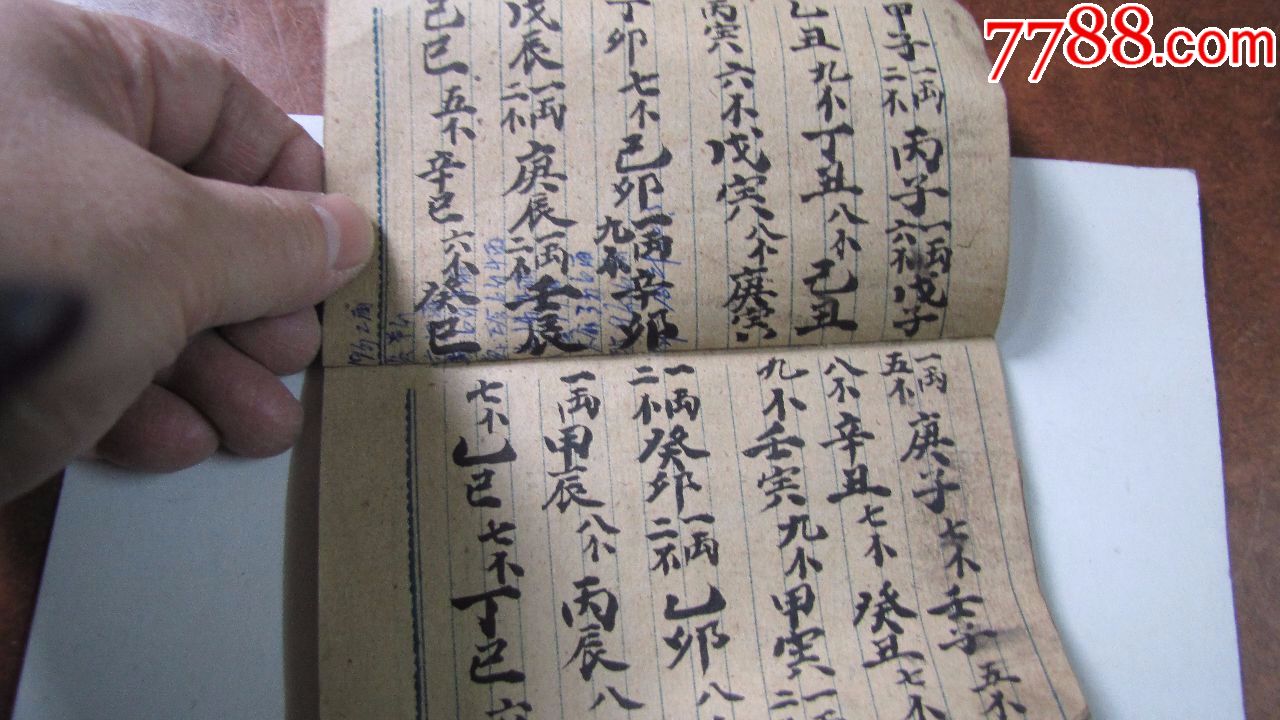 7788.com
甲子一兩二不丙子一兩六不戊子
乙丑九不丁丑八不己丑
丙寅六不戊寅八不庚寅
丁卯七不己卯一兩九不辛卯
戊辰一兩二不庚辰一兩二不壬辰
己巳五不辛巳六不癸巳
一兩五不庚子七不壬子五不
八不辛丑七不癸丑七不
九不壬寅九不甲寅一二
一兩二不癸卯一兩二不乙卯八
一兩甲辰八不丙辰八
七不乙巳七不丁巳六